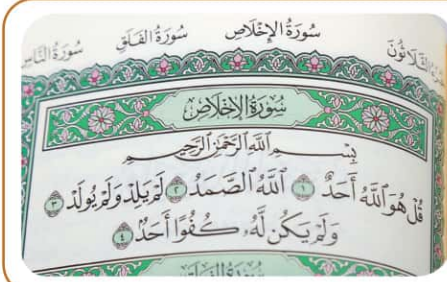 سُورَةُ الإِخْلَاصِ سُورَةُ الفَلَقِ سُورَةُ النَّاسِ
سُورَةُ الإِخْلَاصِ
بِسْمِ اللَّهِ الرَّحْمَٰنِ الرَّحِيمِ
قُلْ هُوَ اللَّهُ أَحَدٌ ١ اللَّهُ الصَّمَدُ ٢ لَمْ يَلِدْ وَلَمْ يُولَدْ ٣
وَلَمْ يَكُن لَّهُۥ كُفُوًا أَحَدٌۢ ٤